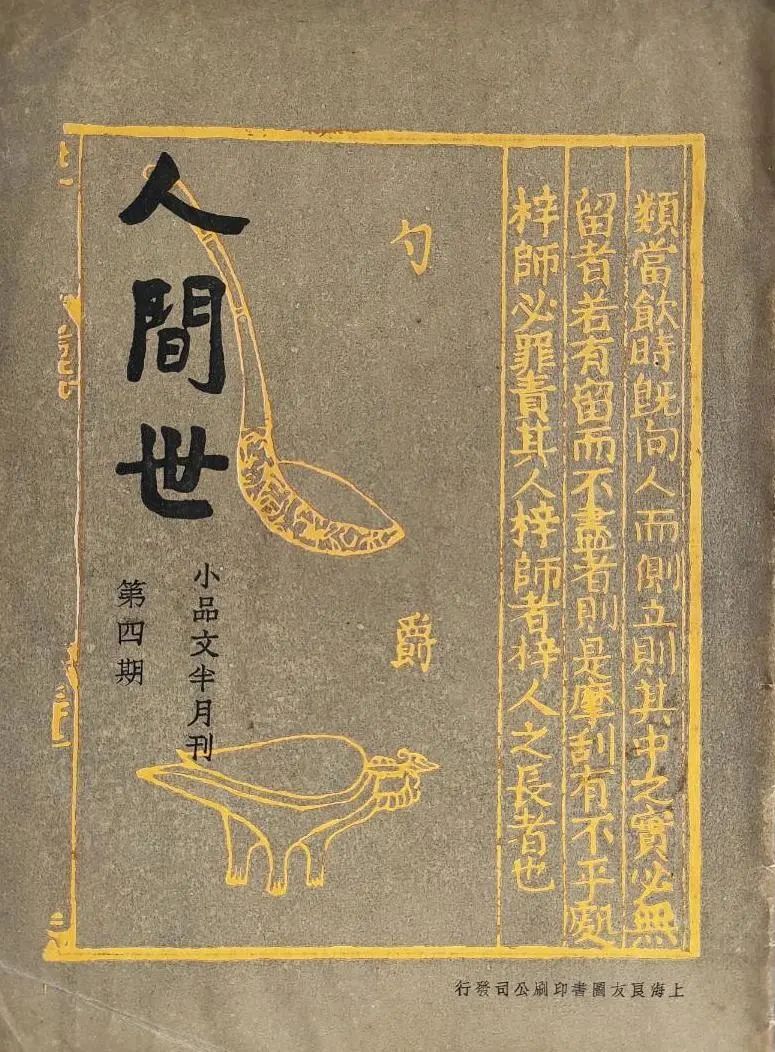 類當飲時旣向人而側立則其中之實必無
留者若有留而不盡者則是摩刮有不平處
梓師必罪責其人梓師者梓人之長者也
勺
爵
人間世
小品文半月刊
第四期
上海良友圖書印刷公司發行